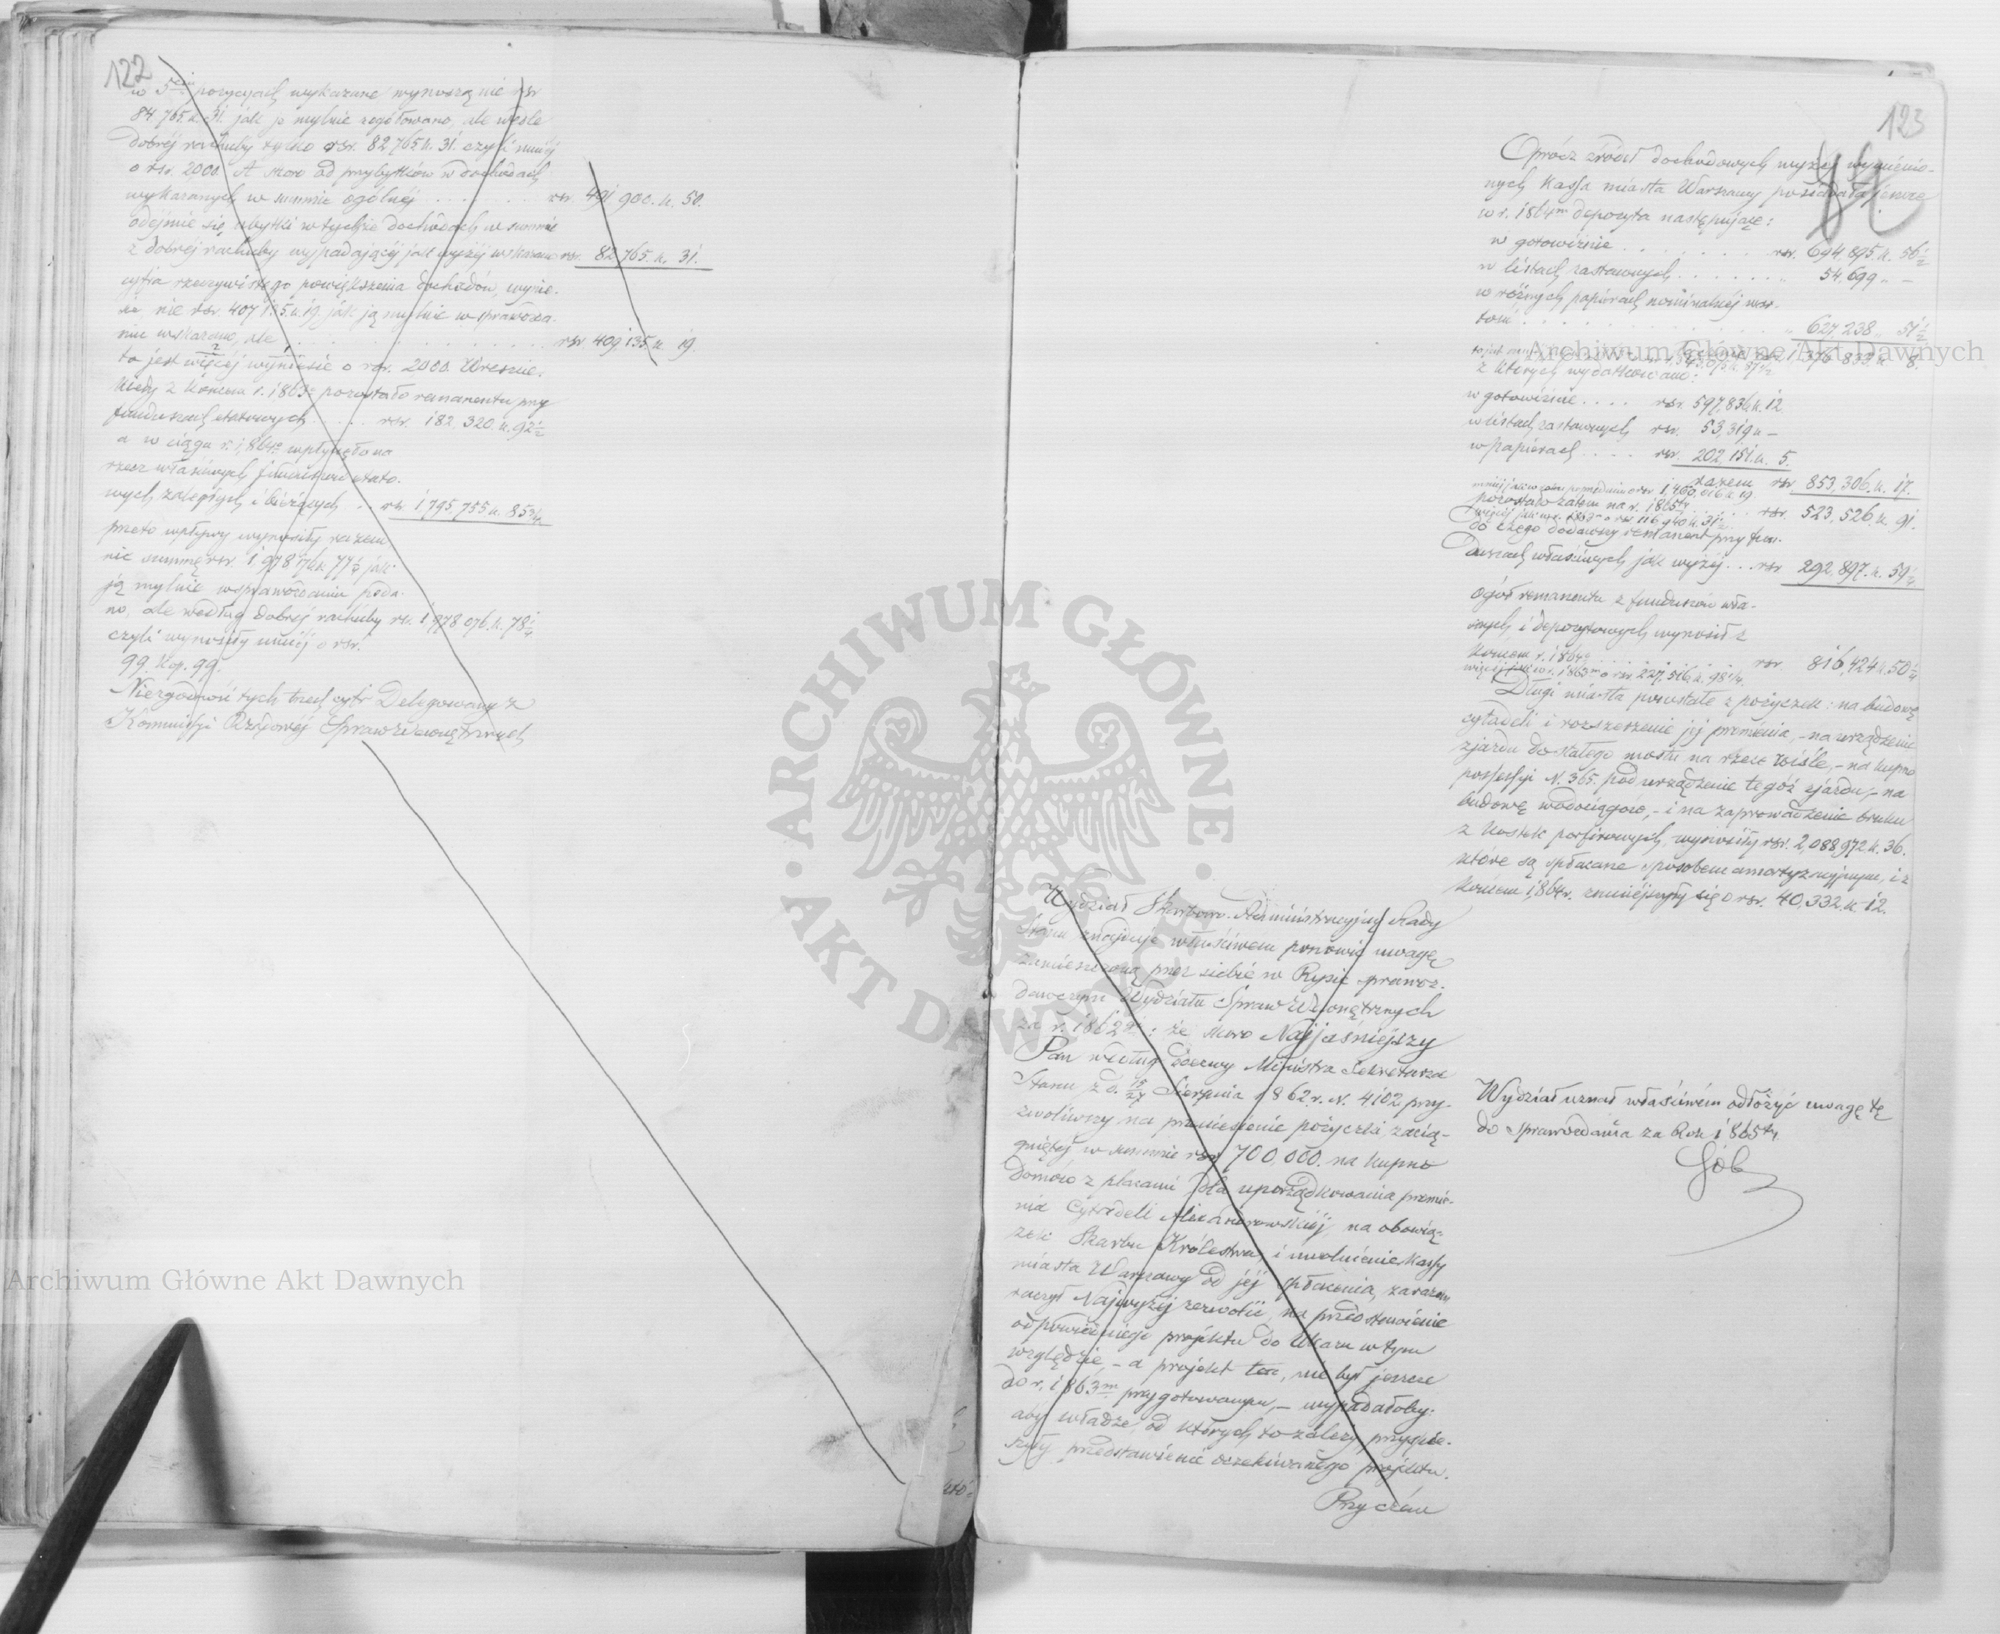 122
w 5ciu pozycyach wykazane wynoszą nie rsr
84.765. k. 31. jak je mylnie zogółowano, ale wedle
dobréj rachuby tylko rsr. 82 765 k. 31. czyli mniéj
o rsr. 2000. A skoro od przybytków w dochodach
wykazanych w summie ogólnéj . . . . . . . rsr. 491 900. k. 50.
odejmie się ubytki w tychże dochodach w summie
z dobréj rachuby wypadającéj jak wyżéj wskazano rsr. 82 765. k. 31.
cyfra rzeczywistego powiększenia dochodów, wynie-
sie nie rsr. 407 135. k. 19. jak ją mylnie w sprawozda-
niu wskazano, ale . . . . . . . . . . . . rsr. 409 135 k. 19.
to jest więcéj wyniesie o rsr. 2000. Wreszcie.
kiedy z końcem r. 1863 pozostało remanentu przy
funduszach etatowych . . . . rsr. 182.320. k. 92½
a w ciągu r. 1864 wpłynęło na
rzecz właściwych funduszów etato-
wych, zaległych i bieżących . . rsr. 1 795,755 k. 85¾
przeto wpływy wynosiły razem
nie summę rsr. 1 978 176 k. 77¼ jak
ją mylnie w sprawozdaniu poda-
no, ale według dobréj rachuby rsr. 1 978 076. k. 78¼
czyli wynosiły mniéj o rsr.
99. kop. 99.
Niezgodność tych trzech cyfr Delegowany z
Kommissyi Rządowéj Spraw Wewnętrznych
123
Oprócz źródeł dochodowych wyżéj wymienio-
nych Kassa miasta Warszawy posiadała jeszcze
w r. 1864m depozyta następujące:
w gotowiźnie . . . . . . . rsr. 694,895 k. 56½
w listach zastawnych . . . . . . . „ 54,699 „ —
w różnych papiérach nominalnéj war-
tości . . . . . . . . . . . . „ 627 238 „ 51½
razem rsr. 1 376 833 k. 8.
z których wydatkowano:
w gotowiźnie . . . . rsr. 597,836 k. 12.
w listach zastawnych rsr. 53,319 k —
w papiérach . . . . rsr. 202,151. k. 5.
razem rsr 853,306. k. 17.
pozostało zatem na r. 1865ty . . . rsr. 523,526. k. 91.
więcéj jak w r. 1863m o rsr 116 940 k. 31½
do czego dodawszy remanent przy fun-
duszach właściwych jak wyżéj . . . rsr 292,897. k. 59¼
ogół remanentu z funduszów wła-
snych i depozytowych wynosił z
końcem r. 1864 . . . . . . . rsr 816,424 k. 50¼
więcéj jak w r. 1863m o rsr 227,516 k. 98¼
Długi miasta powstałe z pożyczek: na budowę
cytadeli i rozszerzenie jéj promienia, – na urządzenie
zjazdu do stałego mostu na rzece Wiśle, – na kupno
possessyi N. 365. pod urządzenie tegoż zjazdu, – na
budowę wodociągów, – i na zaprowadzenie bruku
z kostek porfirowych, wynosiły rsr. 2,088,972 k. 36.
które są spłacane sposobem amortyzacyjnym, i z
końcem 1864 r. zmniejszyły się o rsr. 40,332. k. 12.
Wydział Skarbowo-Administracyjny Rady
Stanu znajduje właściwém ponowić uwagę
zamieszczoną przez siebie w Rysie sprawoz-
dawczym Wydziału Spraw Wewnętrznych
za r. 1862gi: że skoro Najjaśniejszy
Pan według odezwy Ministra Sekretarza
Stanu z d. 15/27 Sierpnia 1862 r. N. 4102 przy-
zwoliwszy na przeniesienie pożyczki, zacią-
gniętéj w summie rsr 700,000. na kupno
domów z placami dla uporządkowania promie-
nia Cytadeli Alexandrowskiéj, na obowią-
zek Skarbu Królestwa, i uwolnienie Kassy
miasta Warszawy od jéj spłacenia, zarazem
raczył Najwyżéj zezwolić, na przedstawienie
odpowiedniego projektu do Ukazu w tym
względzie, – a projekt ten, nie był jeszcze
do r. 1863m przygotowanym, – wypadałoby,
aby władze, od których to zależy, przyspie-
szyły przedstawienie oczekiwanego projektu.
Przyczém
Wydział uznał właściwém odłożyć uwagę tę
do sprawozdania za Rok 1865ty
Archiwum Główne Akt Dawnych
Archiwum Główne Akt Dawnych
ARCHIWUM GŁÓWNE · AKT DAWNYCH ·